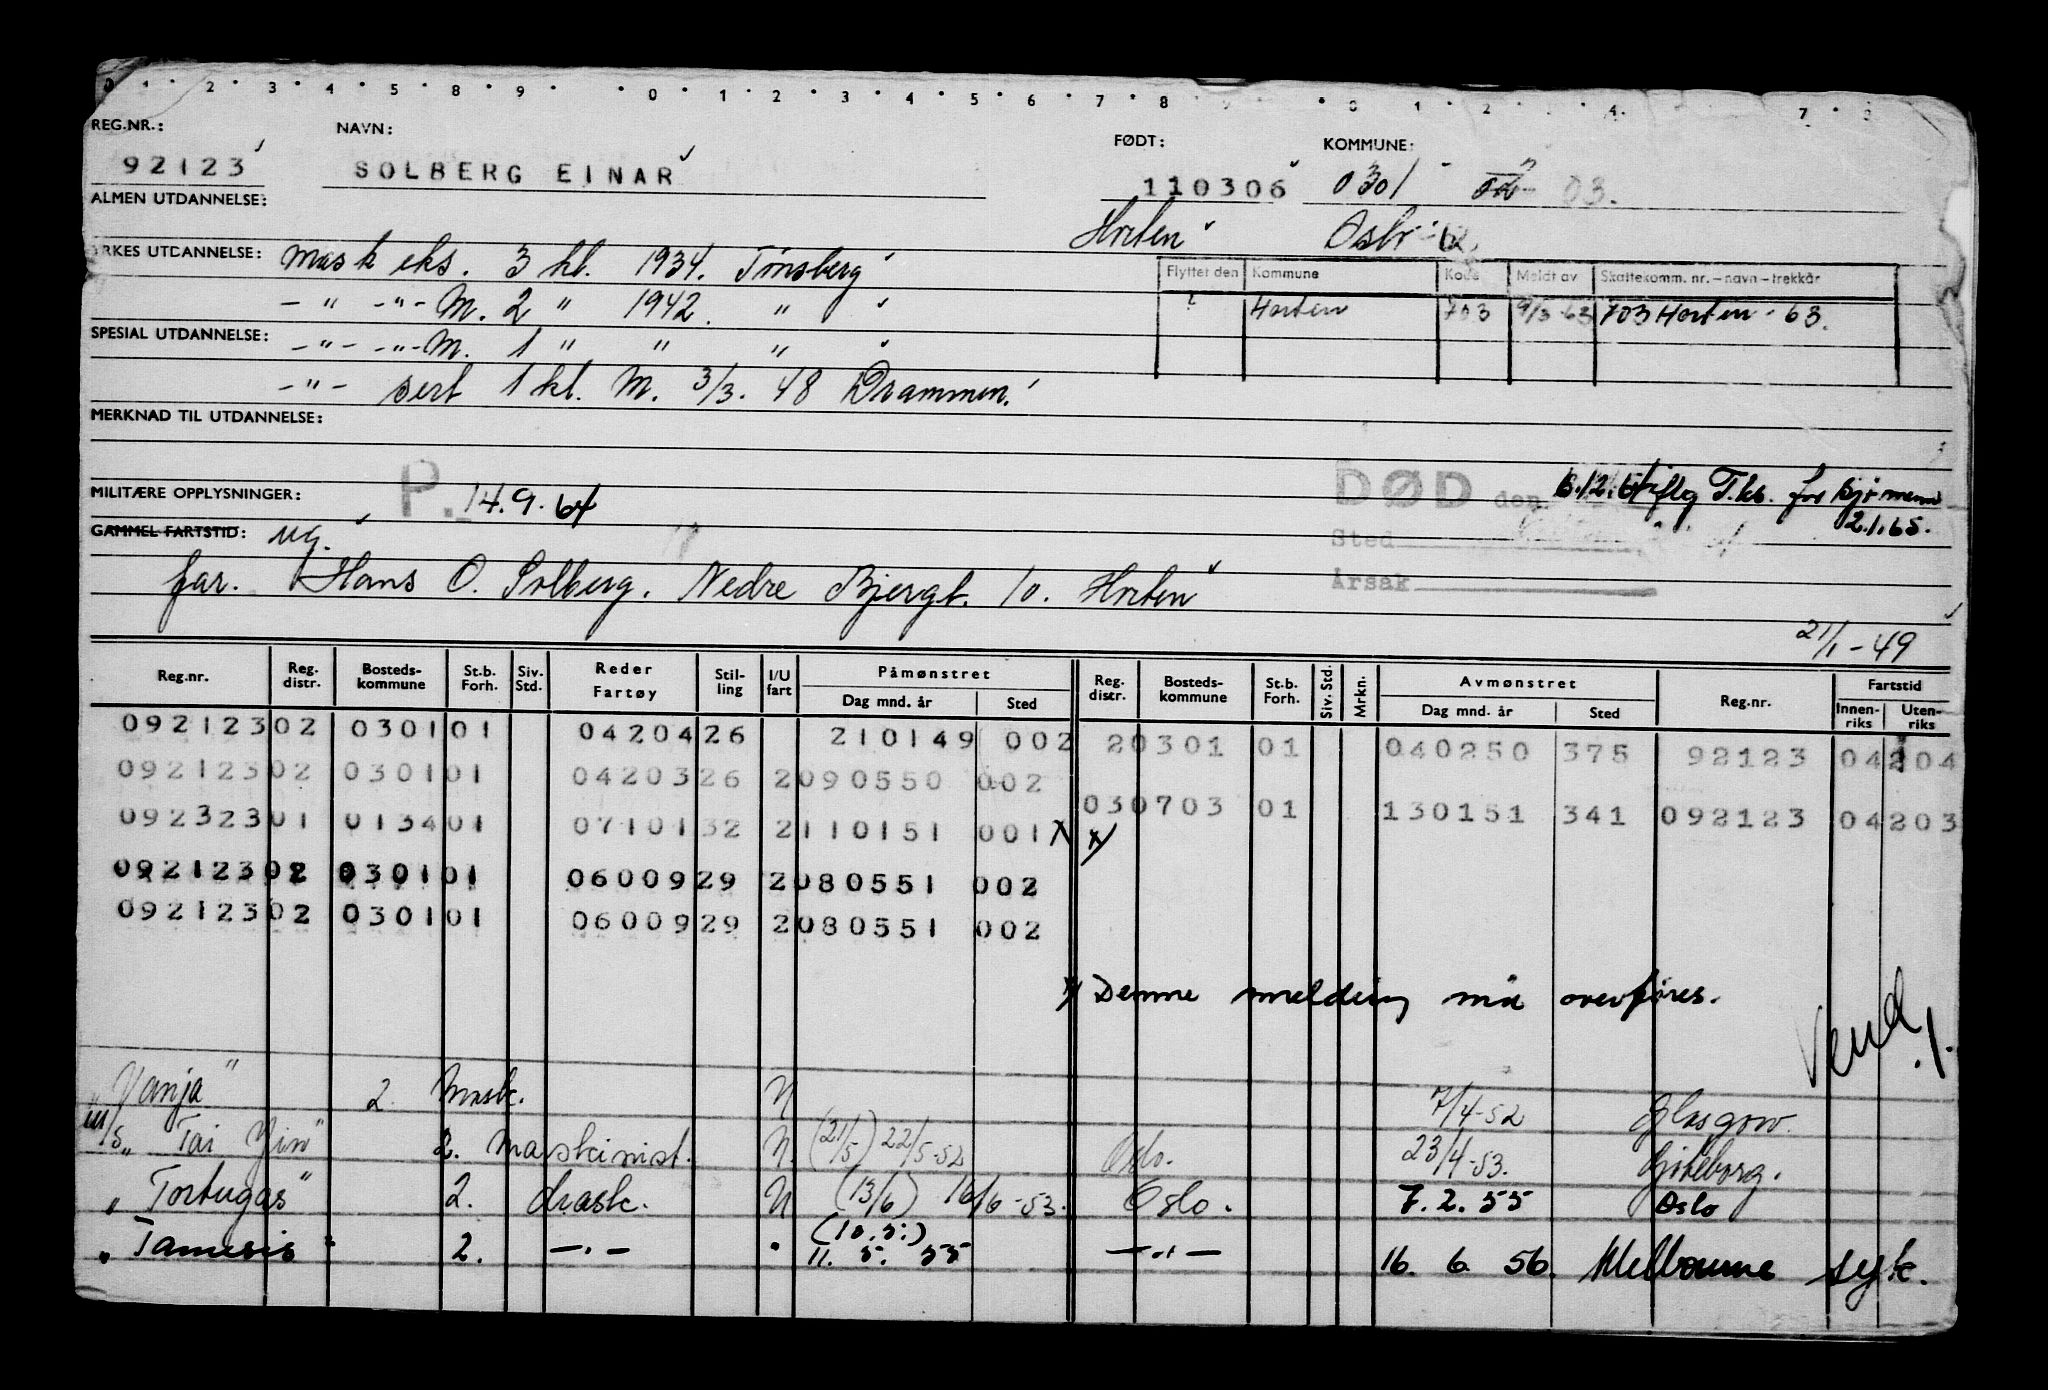 0 1 2 3 4 5 6 8 9 0 1 2 3 4 5 6 7 8 0 1 2 4 7
REG.NR.: NAVN: FØDT: KOMMUNE:
92123 SOLBERG EINAR 110306 0301 03.
ALMEN UTDANNELSE: Horten Oslo 12
YRKES UTDANNELSE: Mask eks. 3 kl. 1934. Tønsberg
Flyttet den Kommune Kode Meldt av Skattekomm. nr. – navn – trekkår
– " – " – M. 2 " 1942. "
Horten 703 9/3 63 703 Horten - 63.
SPESIAL UTDANNELSE: – " – – " – M. 1 " " "
– " – sert 1 kl. M. 3/3. 48 Drammen.
MERKNAD TIL UTDANNELSE:
MILITÆRE OPPLYSNINGER: P. 14.9.64 DØD den 6.12.64 iflg T.ks. for sjømenn
2.1.65.
GAMMEL FARTSTID: ug. Sted
far. Hans O. Solberg. Nedre Bjergt. 10. Horten Årsak
21/1-49
Reg.nr. Reg. distr. Bosteds-kommune St.b. Forh. Siv. Std. Reder Fartøy Stil-ling I/U fart Påmønstret Dag mnd. år Sted Reg. distr. Bosteds-kommune St.b. Forh. Siv. Std. Mrkn. Avmønstret Dag mnd. år Sted Reg.nr. Fartstid Innen-riks Uten-riks
092123 02 0301 01 04204 26 210149 002 20301 01 040250 375 92123 04204
092123 02 0301 01 04203 26 2 090550 002 030703 01 130151 341 092123 04203
092323 01 0134 01 07101 32 2 110151 001 x x/
092123 02 0301 01 06009 29 2 080551 002
092123 02 0301 01 06009 29 2 080551 002
x/ Denne melding må overføres.
Vend!
"Vanja" 2. Mask. U 7/4-52 Glasgow.
M/S "Tai Yin" 2. maskinist. U. (21/5) 22/5-52 Oslo. 23/4-53. Göteborg.
"Tortugas" 2. mask. U (13/6) 16/6-53. Oslo. 7.2.55 Oslo
"Tamesis" 2. – " – " (10.5.) 11. 5. 55 – " – 16. 6. 56. Melbourne syk.